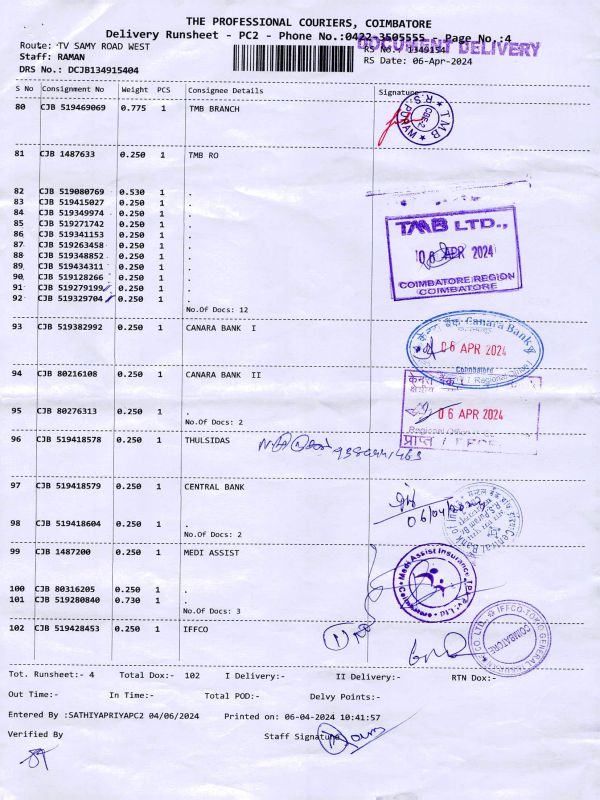 THE PROFESSIONAL COURIERS, COIMBATORE
Delivery Runsheet - PC2 - Phone No.:0422-3505555 - Page No.:4
DOCUMENT DELIVERY
Route: TV SAMY ROAD WEST
RS No.: 1349154
Staff: RAMAN
RS Date: 06-Apr-2024
DRS No.: DCJB134915404
S No Consignment No Weight PCS Consignee Details Signature
80 CJB 519469069 0.775 1 TMB BRANCH
TMB R.S. PURAM CBE-2
81 CJB 1487633 0.250 1 TMB RO
82 CJB 519080769 0.530 1 .
83 CJB 519415027 0.250 1 .
84 CJB 519349974 0.250 1 .
85 CJB 519271742 0.250 1 .
86 CJB 519341153 0.250 1 .
87 CJB 519263458 0.250 1 .
88 CJB 519348852 0.250 1 .
89 CJB 519434311 0.250 1 .
90 CJB 519128266 0.250 1 .
91 CJB 519279199 0.250 1 .
92 CJB 519329704 0.250 1 .
No.Of Docs: 12
TMB LTD.,
06 APR 2024
COIMBATORE REGION
COIMBATORE
93 CJB 519382992 0.250 1 CANARA BANK I
Canara Bank
06 APR 2024
Coimbatore
94 CJB 80216108 0.250 1 CANARA BANK II
केनरा बैंक
95 CJB 80276313 0.250 1 .
No.Of Docs: 2
06 APR 2024
Regional
प्राप्त
96 CJB 519418578 0.250 1 THULSIDAS
97 CJB 519418579 0.250 1 CENTRAL BANK
98 CJB 519418604 0.250 1 .
No.Of Docs: 2
Central Bank
99 CJB 1487200 0.250 1 MEDI ASSIST
Medi Assist Insurance
100 CJB 80316205 0.250 1 .
101 CJB 519280840 0.730 1 .
No.Of Docs: 3
102 CJB 519428453 0.250 1 IFFCO
IFFCO-TOKIO GENERAL
COIMBATORE
Tot. Runsheet:- 4 Total Dox:- 102 I Delivery:- II Delivery:- RTN Dox:-
Out Time:- In Time:- Total POD:- Delvy Points:-
Entered By :SATHIYAPRIYAPC2 04/06/2024 Printed on: 06-04-2024 10:41:57
Verified By Staff Signature